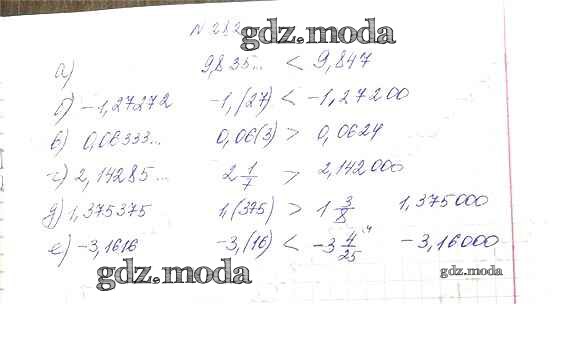 N 282
gdz.moda
а) 9,835... < 9,847
б) -1,27272 -1,(27) < -1,27200
в) 0,06333... 0,06(3) > 0,0624
г) 2,14285... 2 1/7 > 2,142000
д) 1,375375 1,(375) > 1 3/8 1,375000
е) -3,1616 -3,(16) < -3 4/25 -3,16000
gdz.moda
gdz.moda